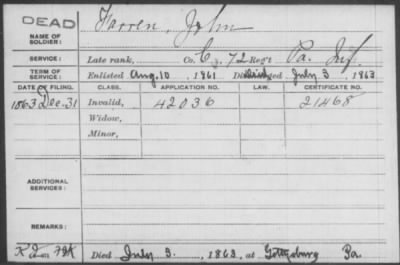 DEAD
NAME OF SOLDIER: Farren, John
SERVICE: Late rank, Co. C, 72 Reg't Pa. Inf
TERM OF SERVICE: Enlisted Aug. 10, 1861 Discharged July 3, 1863
DATE OF FILING. CLASS. APPLICATION NO. LAW. CERTIFICATE NO.
1863 Dec. 31 Invalid, 42036 21468
Widow,
Minor,
ADDITIONAL SERVICES:
REMARKS:
Died July 3, 1863, at Gettysburg Pa.